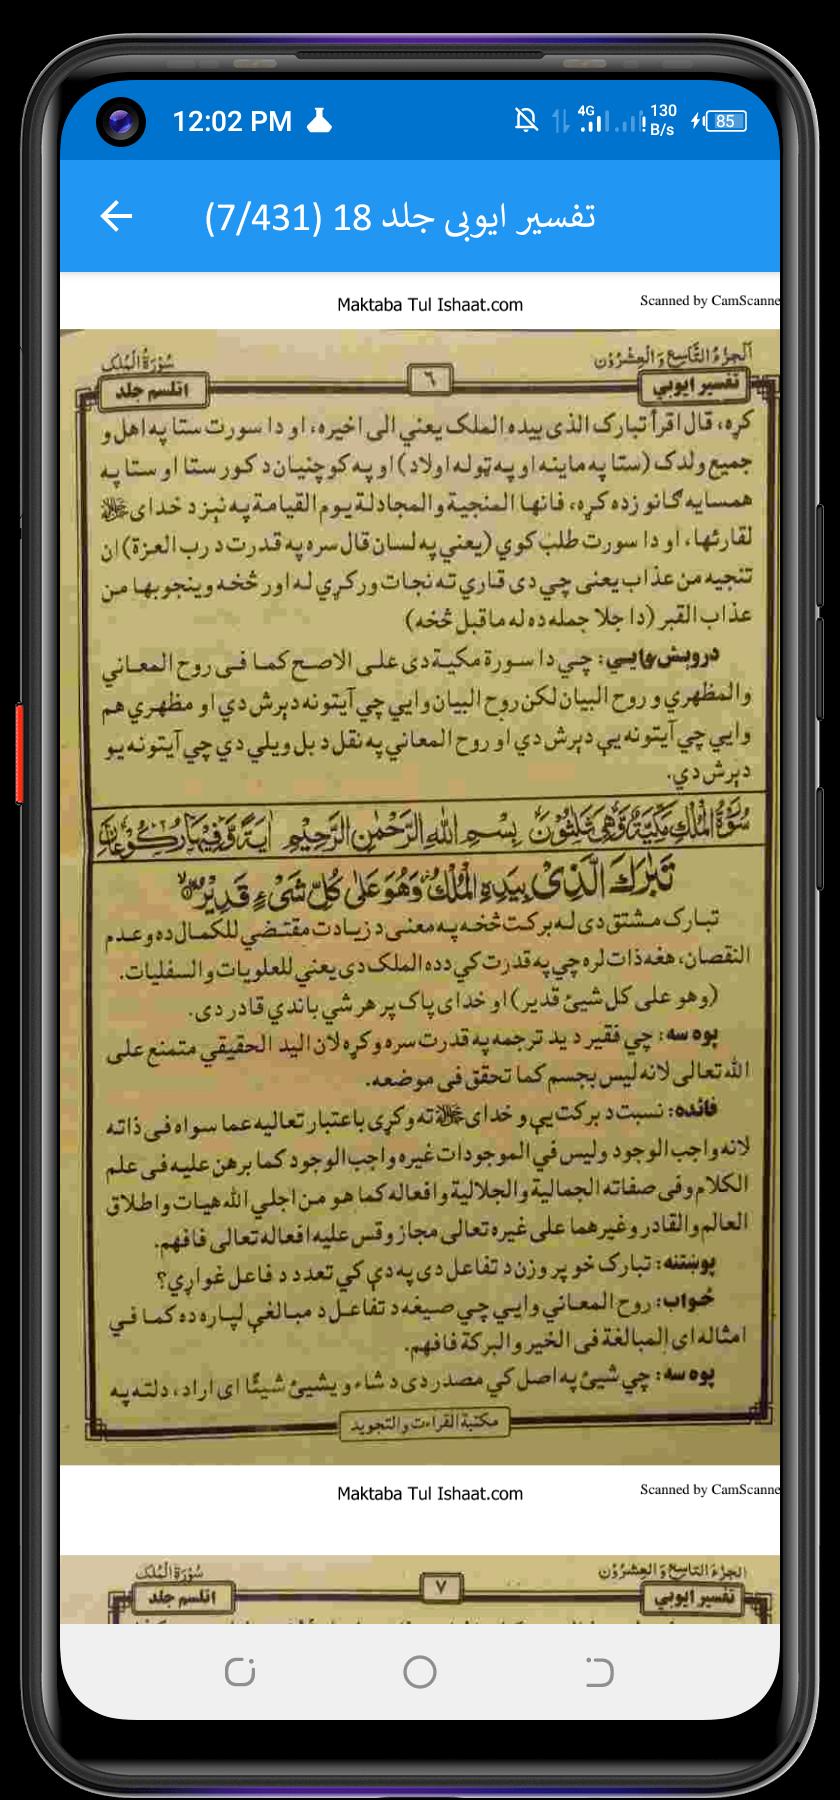 12:02 PM
4G
130
B/s
85
تفسير ايوبى جلد 18 (7/431)
Maktaba Tul Ishaat.com
Scanned by CamScanne
اَلْجُزْءُ التَّاسِعُ وَالْعِشْرُوْن
سُوْرَةُ الْمُلْك
تفسير ايوبي
٦
اتلسم جلد
كړه، قال اقرأ تبارك الذى بيده الملك يعني الى اخيره، او دا سورت ستا په اهل و
جميع ولدك (ستا په ماينه او په ټوله اولاد) او په كوچنيان د كور ستا او ستا په
همسايه ګانو زده كړه، فانها المنجية والمجادلة يوم القيامة په نېزد خداى ﷻ
لقارئها، او دا سورت طلب كوي (يعني په لسان قال سره په قدرت د رب العزة) ان
تنجيه من عذاب يعنى چي دى قاري ته نجات وركړي له اور څخه وينجو بها من
عذاب القبر (دا جلا جمله ده له ماقبل څخه)
دروېش وايي: چي دا سورة مكية دى على الاصح كما فى روح المعاني
والمظهري و روح البيان لكن روح البيان وايي چي آيتونه دېرش دي او مظهري هم
وايي چي آيتونه يې دېرش دي او روح المعاني په نقل د بل ويلي دي چي آيتونه يو
دېرش دي.
سُوْرَةُ الْمُلْكِ مَكِّيَّةٌ وَّهِيَ ثَلٰثُوْنَ بِسْمِ اللهِ الرَّحْمٰنِ الرَّحِيْمِ اٰيَةً وَّفِيْهَا رُكُوْعَانِ
تَبٰرَكَ الَّذِىْ بِيَدِهِ الْمُلْكُ وَهُوَ عَلٰى كُلِّ شَىْءٍ قَدِيْرُ
تبارك مشتق دى له بركت څخه په معنى د زيادت مقتضي للكمال ده و عدم
النقصان، هغه ذات لره چي په قدرت كي دده الملك دى يعني للعلويات والسفليات.
(وهو على كل شيئ قدير) او خداى پاك پر هر شي باندي قادر دى.
پوه سه: چي فقير د يد ترجمه په قدرت سره وكړه لان اليد الحقيقي متمنع على
الله تعالى لانه ليس بجسم كما تحقق فى موضعه.
فائده: نسبت د بركت يې و خداى ﷻ ته وكړى باعتبار تعاليه عما سواه فى ذاته
لانه واجب الوجود وليس في الموجودات غيره واجب الوجود كما برهن عليه فى علم
الكلام وفى صفاته الجمالية والجلالية وافعاله كما هو من اجلي الله هيات واطلاق
العالم والقادر وغيرهما على غيره تعالى مجاز وقس عليه افعاله تعالى فافهم.
پوښتنه: تبارك خو پر وزن د تفاعل دى په دې كي تعدد د فاعل غواړي؟
ځواب: روح المعاني وايي چي صيغه د تفاعل د مبالغې لپاره ده كما في
امثاله اى المبالغة فى الخير والبركة فافهم.
پوه سه: چي شيئ په اصل كي مصدر دى د شاء و يشيئ شيئًا اى اراد، دلته په
مكتبة القراءت والتجويد
Maktaba Tul Ishaat.com
Scanned by CamScanne
الجزء التاسع والعشرون
سُوْرَةُ الْمُلْك
تفسير ايوبي
٧
اتلسم جلد